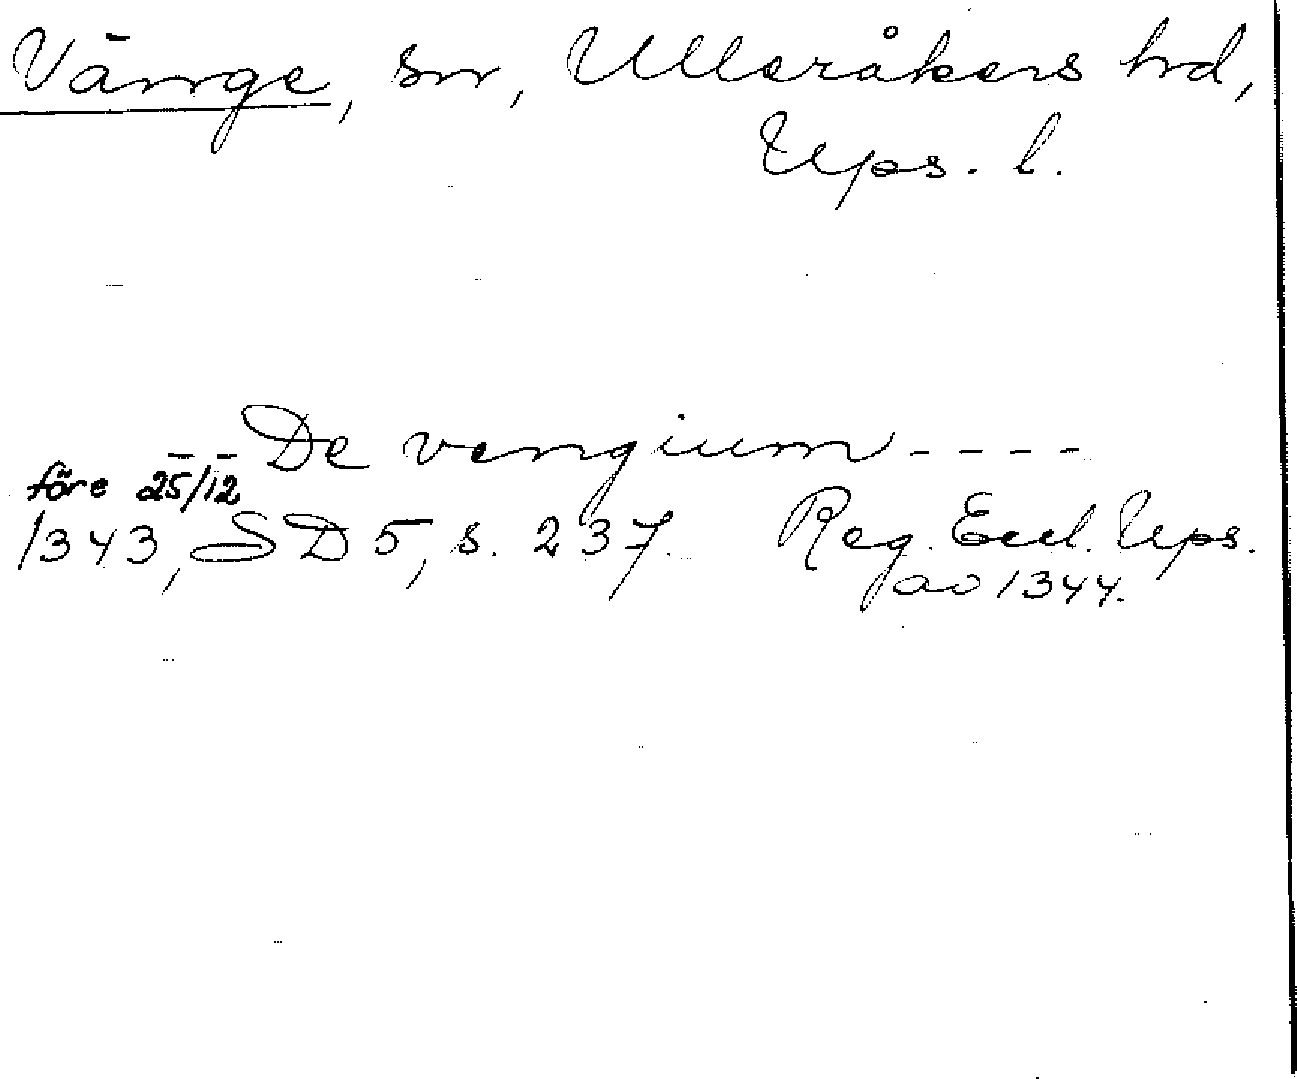 Vänge, sn, Ulleråkers hd,
Ups. l.
- - De vengium - - - -
före 25/12
1343, SD 5, s. 237. Reg. Eccl. Ups.
ao 1344.